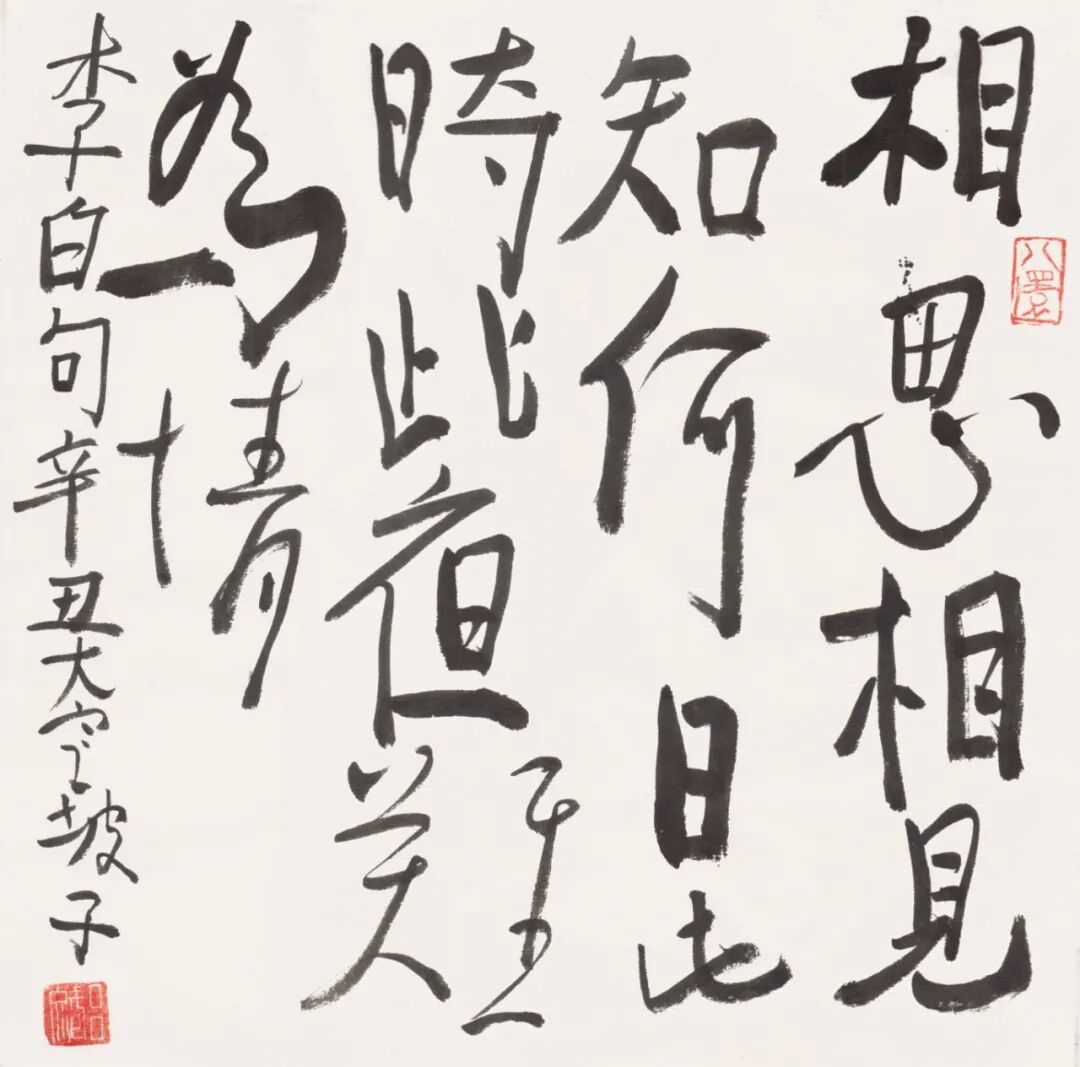 相思相見
知何日此
時此夜難
為情
李白句辛丑大坡子